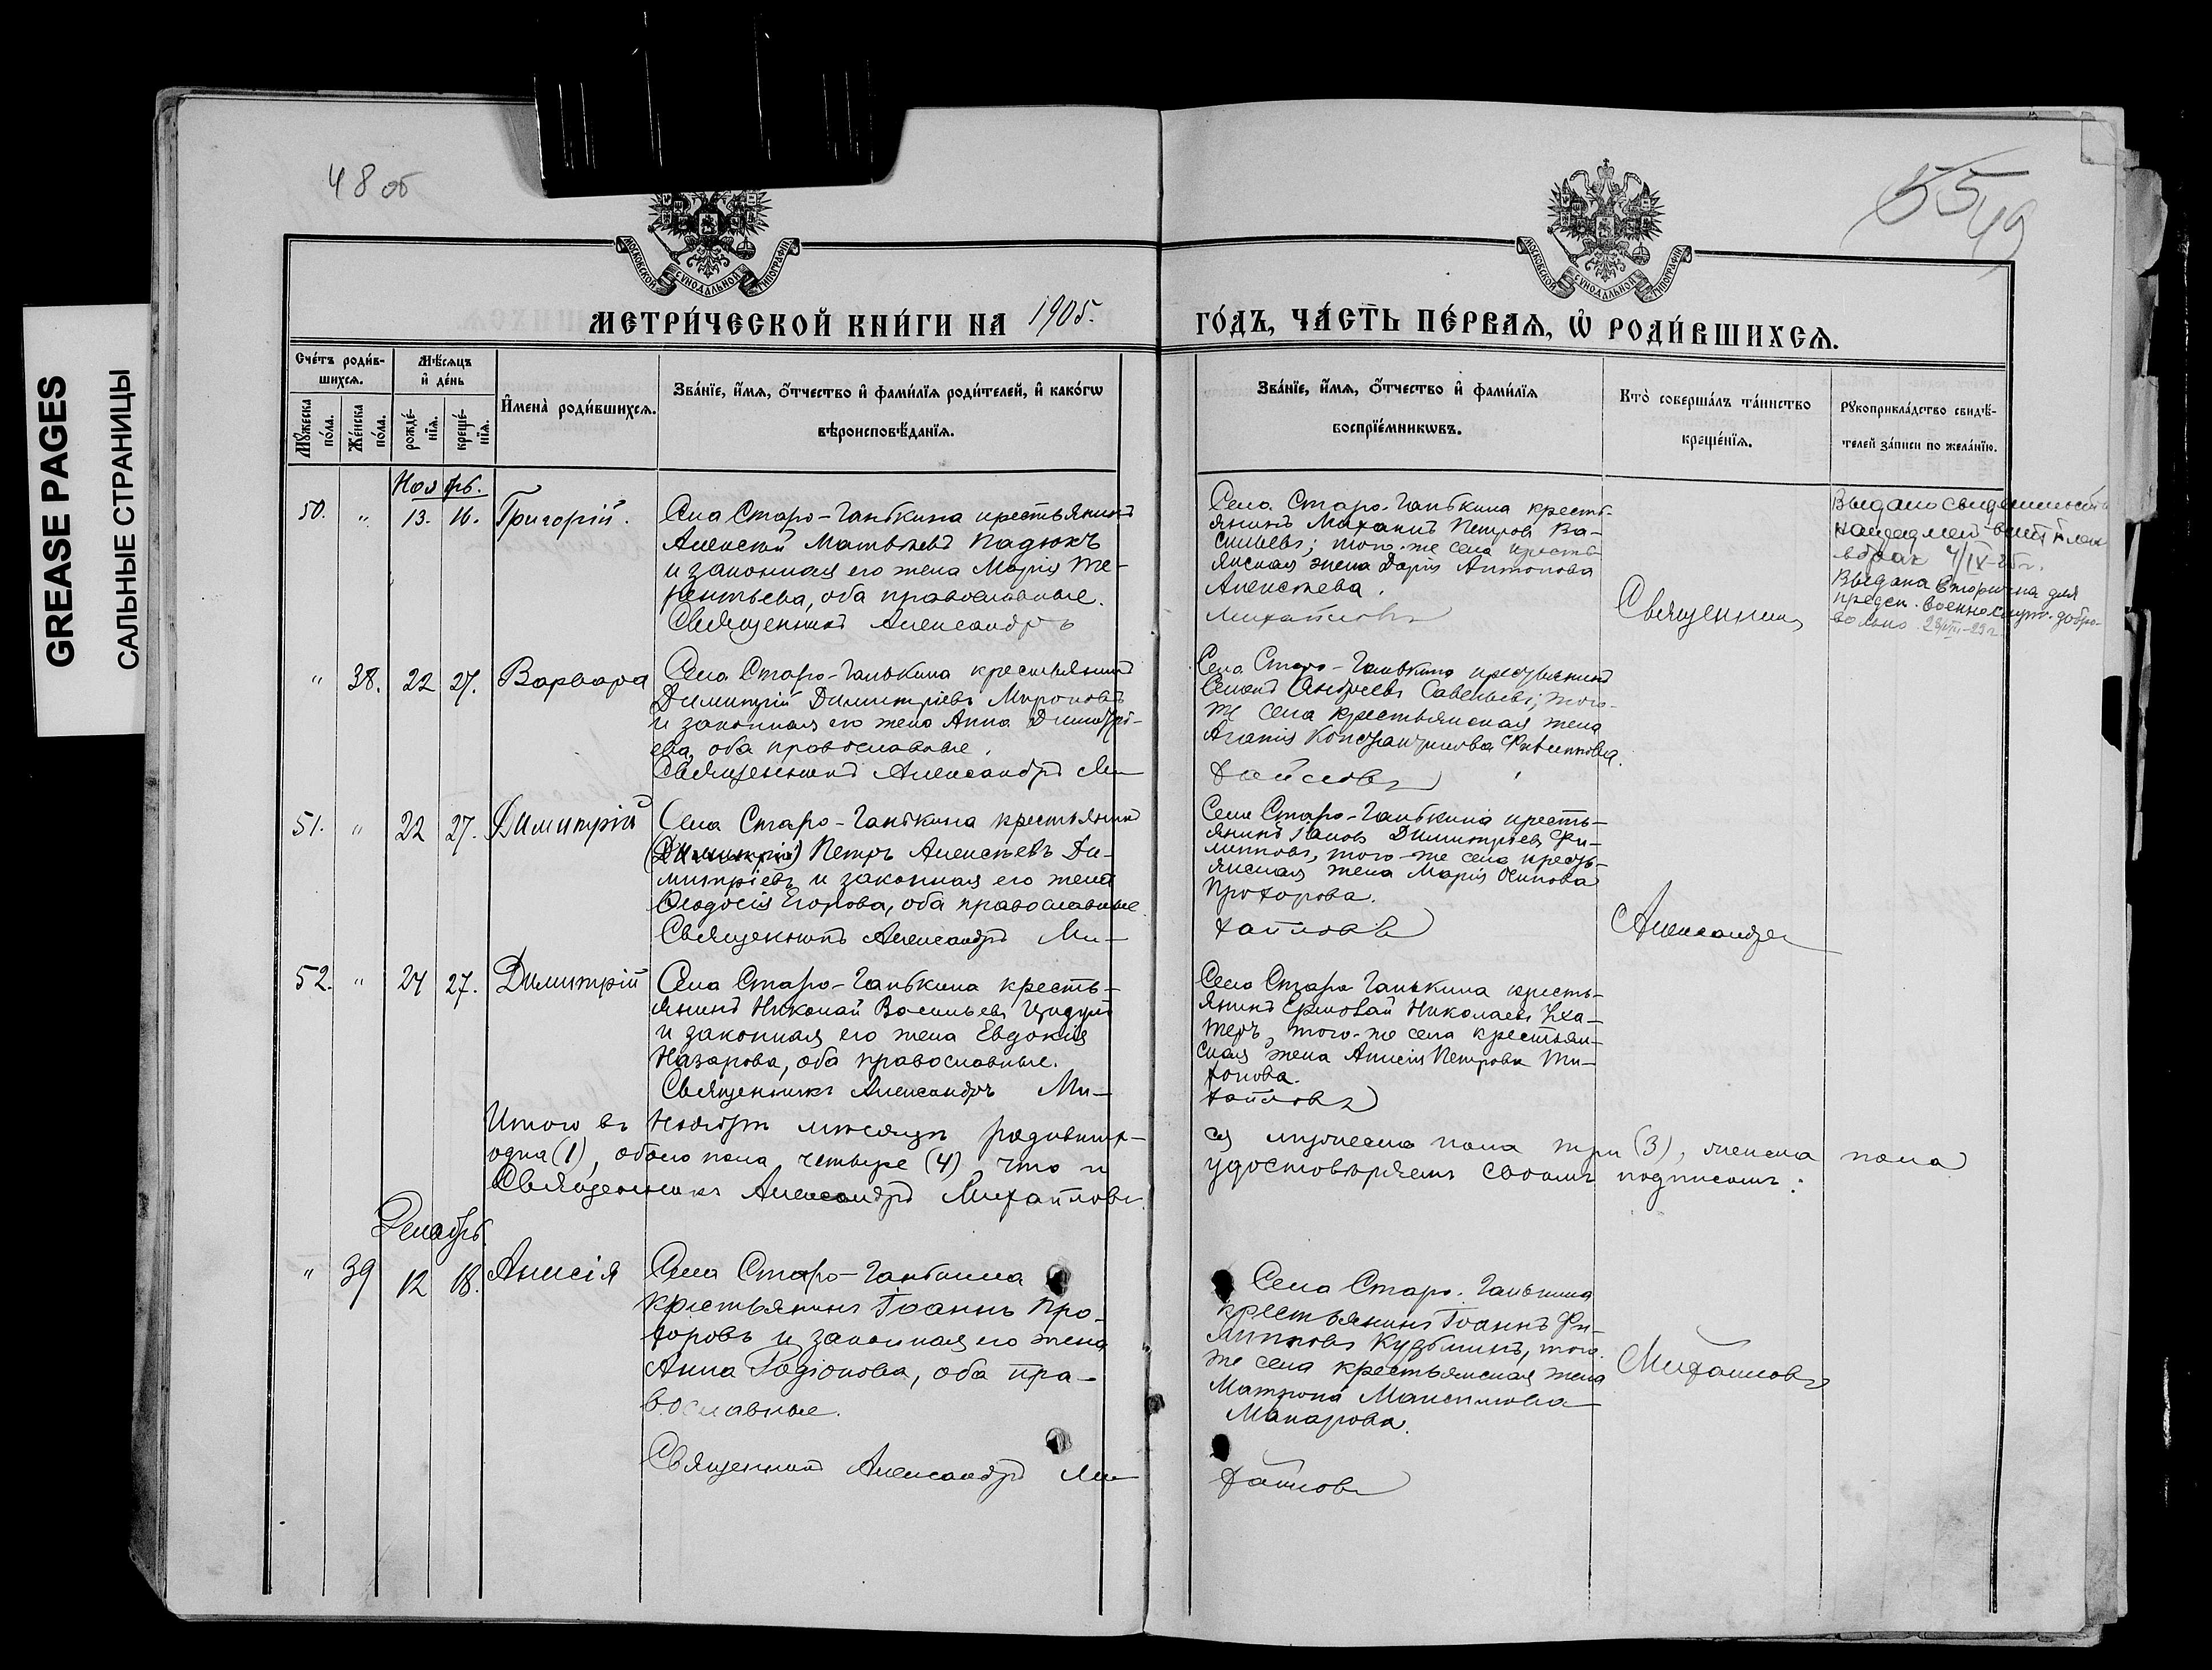 GREASE PAGES
САЛЬНЫЕ СТРАНИЦЫ
48 об
55
49
МОСКОВСКОЙ СУНОДАЛЬНОЙ ТИПОГРАФІИ
МОСКОВСКОЙ СУНОДАЛЬНОЙ ТИПОГРАФІИ
МЕТРИ́ЧЕСКОЙ КНИ́ГИ НА 1905.
ГО́ДЪ, ЧА́СТЬ ПЕ́РВАЯ, Ѿ РОДИ́ВШИХСЯ.
Сче́тъ роди́в-
шихся.
Мꙋ́жеска по́ла.
Же́нска по́ла.
Мѣ́сяцъ
и҆ де́нь
рожде́-
нїя.
креще́-
нїя.
И҆мена̀ роди́вшихся.
Зва́нїе, и҆́мя, ѻ҆́тчество и҆ фами́лїя роди́телей, и҆ како́гѡ
вѣроисповѣ́данїя.
Зва́нїе, и҆́мя, ѻ҆́тчество и҆ фами́лїя
воспрїе́мникѡвъ.
Кто̀ соверша́лъ та́инство
креще́нїя.
Рꙋкоприкла́дство свидѣ́-
телей за́писи по жела́нїю.
Ноябрь.
50. " 13. 16. Григорій.
Села Старо-Ганькина крестьянинъ
Алексѣй Матвѣевъ Падюкъ
и законная его жена Марія Те-
рентьева, оба православные.
Священникъ Александръ
Села Старо-Ганькина кресть-
янинъ Михаилъ Петровъ Ва-
сильевъ; того-же села кресть-
янская жена Дарія Антонова
Алексѣева.
Михайловъ
Священникъ
Выдано
вбрак 4/IX-25г.
Выдана вторична для
28/VIII-29г.
" 38. 22 27. Варвара
Села Старо-Ганькина крестьянинъ
Димитрій Димитріевъ Мироновъ
и законная его жена Анна Димитрі-
ева, оба православные.
Священникъ Александръ Ми-
Села Старо-Ганькина крестьянинъ
Андреевъ Савельевъ; того-
же села крестьянская жена
Агапія Константинова Филиппова.
хайловъ
51. " 22 27. Димитрій
Села Старо-Ганькина крестьянинъ
(Димитрій) Петръ Алексѣевъ Ди-
митріевъ и законная его жена
Ѳеодосія Егорова, оба православные
Священникъ Александръ Ми-
Села Старо-Ганькина кресть-
янинъ Іаковъ Димитріевъ Фи-
липповъ, того-же села кресть-
янская жена Марія Осипова
Прохорова.
хайловъ
Александръ
52. " 24 27. Димитрій
Села Старо-Ганькина кресть-
янинъ Николай Васильевъ
и законная его жена Евдокія
Назарова, оба православные.
Священникъ Александръ Ми-
Села Старо-Ганькина кресть-
янинъ Ермолай Николаевъ
того-же села крестьян-
ская жена Анисія Петрова Ти-
хонова.
хайловъ
Итого въ Ноябрѣ мѣсяцѣ родивших-
ся мужеска пола три (3), женска пола
одна (1), обоего пола четыре (4) что и
удостовѣряемъ своимъ подписомъ:
Священникъ Александръ Михайловъ.
Декабрь.
" 39 12 18. Анисія
Села Старо-Ганькина
крестьянинъ Іоаннъ Про-
хоровъ и законная его жена
Анна Родіонова, оба пра-
вославные.
Священникъ Александръ Ми-
Села Старо-Ганькина
крестьянинъ Іоаннъ Фи-
липповъ Кузьминъ, того-
же села крестьянская жена
Матрона Максимова
Макарова.
хайловъ
Михайловъ